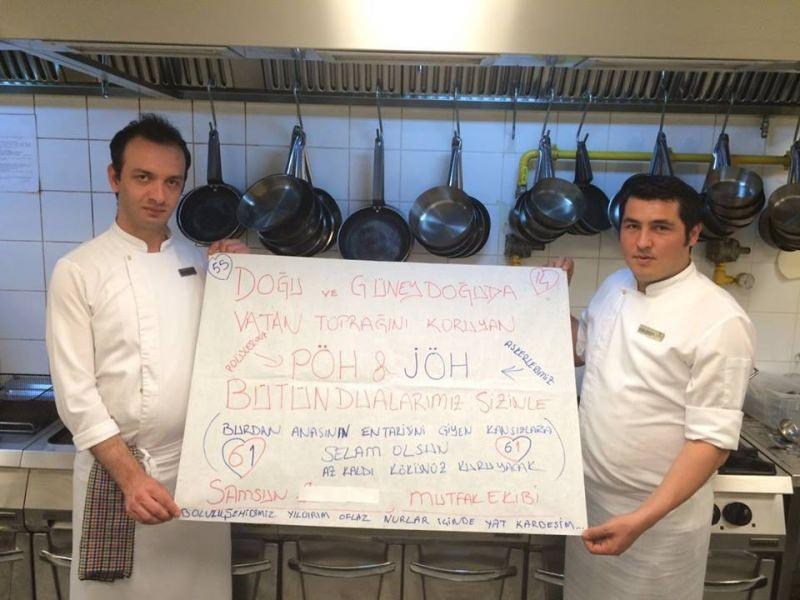 55
14
DOĞU VE GÜNEYDOĞUDA
VATAN TOPRAĞINI KORUYAN
POLİSLERİMİZ
PÖH & JÖH
ASKERLERİMİZ
BÜTÜN DUALARIMIZ SİZİNLE
(BURDAN ANASININ ENTARİSİNİ GİYEN KANSIZLARA
61
SELAM OLSUN
61
AZ KALDI KÖKÜNÜZ KURUYACAK)
SAMSUN MUTFAK EKİBİ
BOLULU ŞEHİDİMİZ YILDIRIM OFLAZ NURLAR İÇİNDE YAT KARDEŞİM...